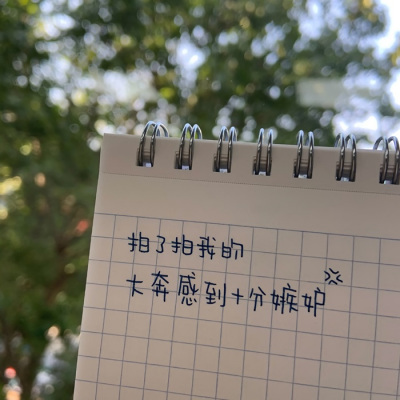 拍了拍我的
大奔感到十分嫉妒